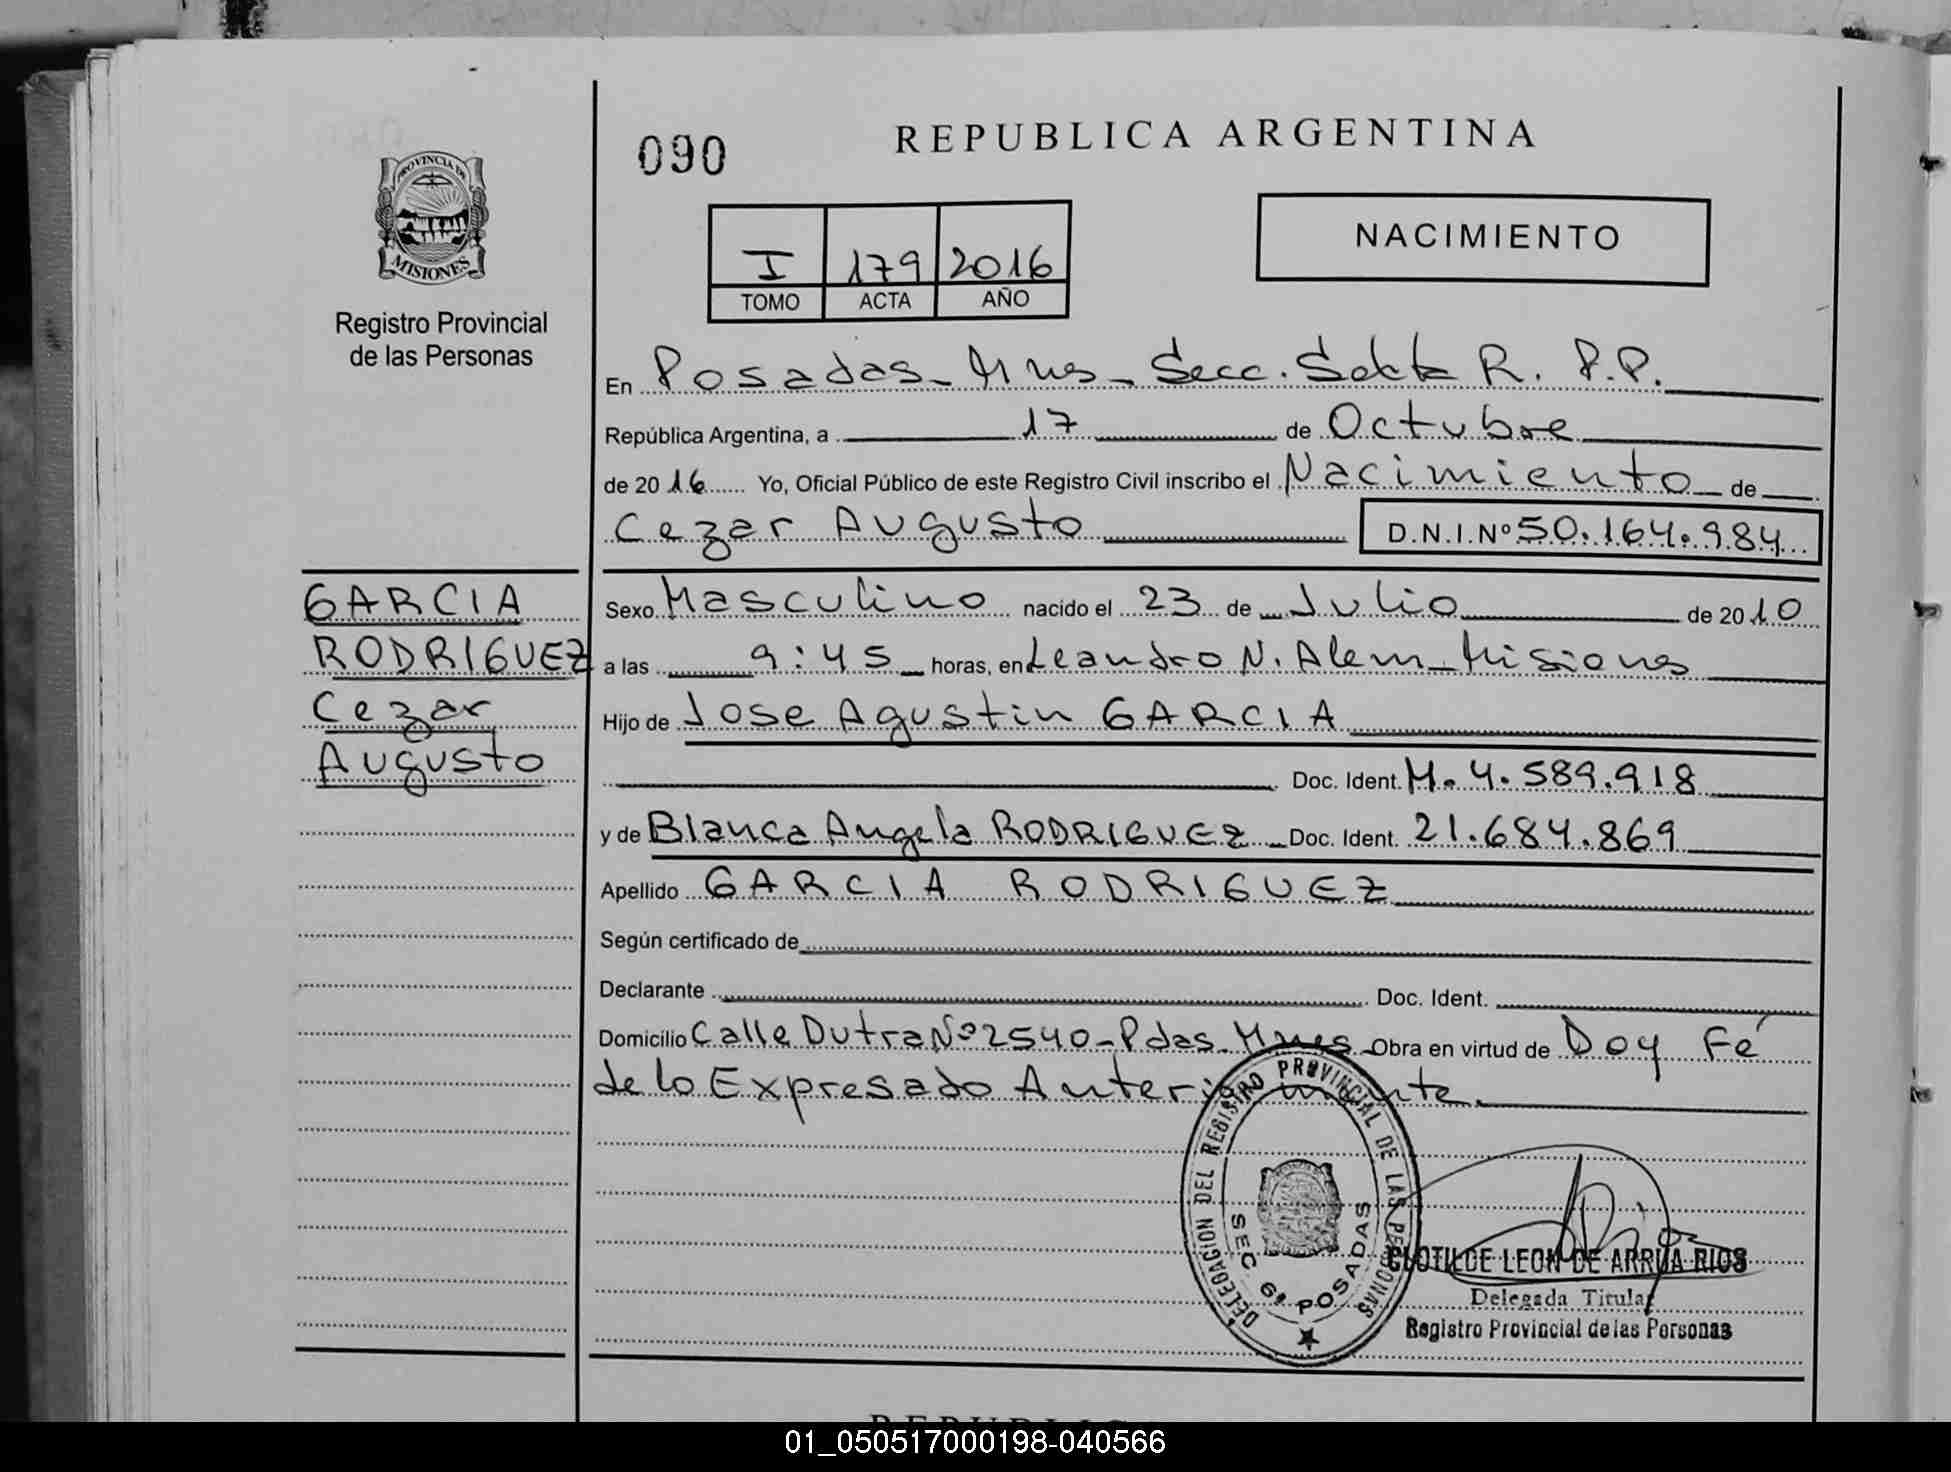 090
REPUBLICA ARGENTINA
PROVINCIA DE
MISIONES
Registro Provincial
de las Personas
I 179 2016
TOMO ACTA AÑO
NACIMIENTO
En Posadas - Mnes - Secc. Sexta R. P.P.
República Argentina, a 17 de Octubre
de 20 16 Yo, Oficial Público de este Registro Civil inscribo el Nacimiento de
Cezar Augusto D.N.I.Nº 50.164.984
GARCIA
RODRIGUEZ
Cezar
Augusto
Sexo Masculino nacido el 23 de Julio de 20 10
a las 9:45 horas, en Leandro N. Alem - Misiones
Hijo de Jose Agustin GARCIA
Doc. Ident. M. 4.589.918
y de Blanca Angela RODRIGUEZ - Doc. Ident. 21.684.869
Apellido GARCIA RODRIGUEZ
Según certificado de
Declarante Doc. Ident.
Domicilio Calle Dutra Nº 2540 - Pdas. Mnes Obra en virtud de Doy Fé
de lo Expresado Anteriormente.
DELEGACION DEL REGISTRO PROVINCIAL DE LAS PERSONAS
SEC 6ª POSADAS
CLOTILDE LEON DE ARRUA RIOS
Delegada Titular
Registro Provincial de las Personas
01_050517000198-040566